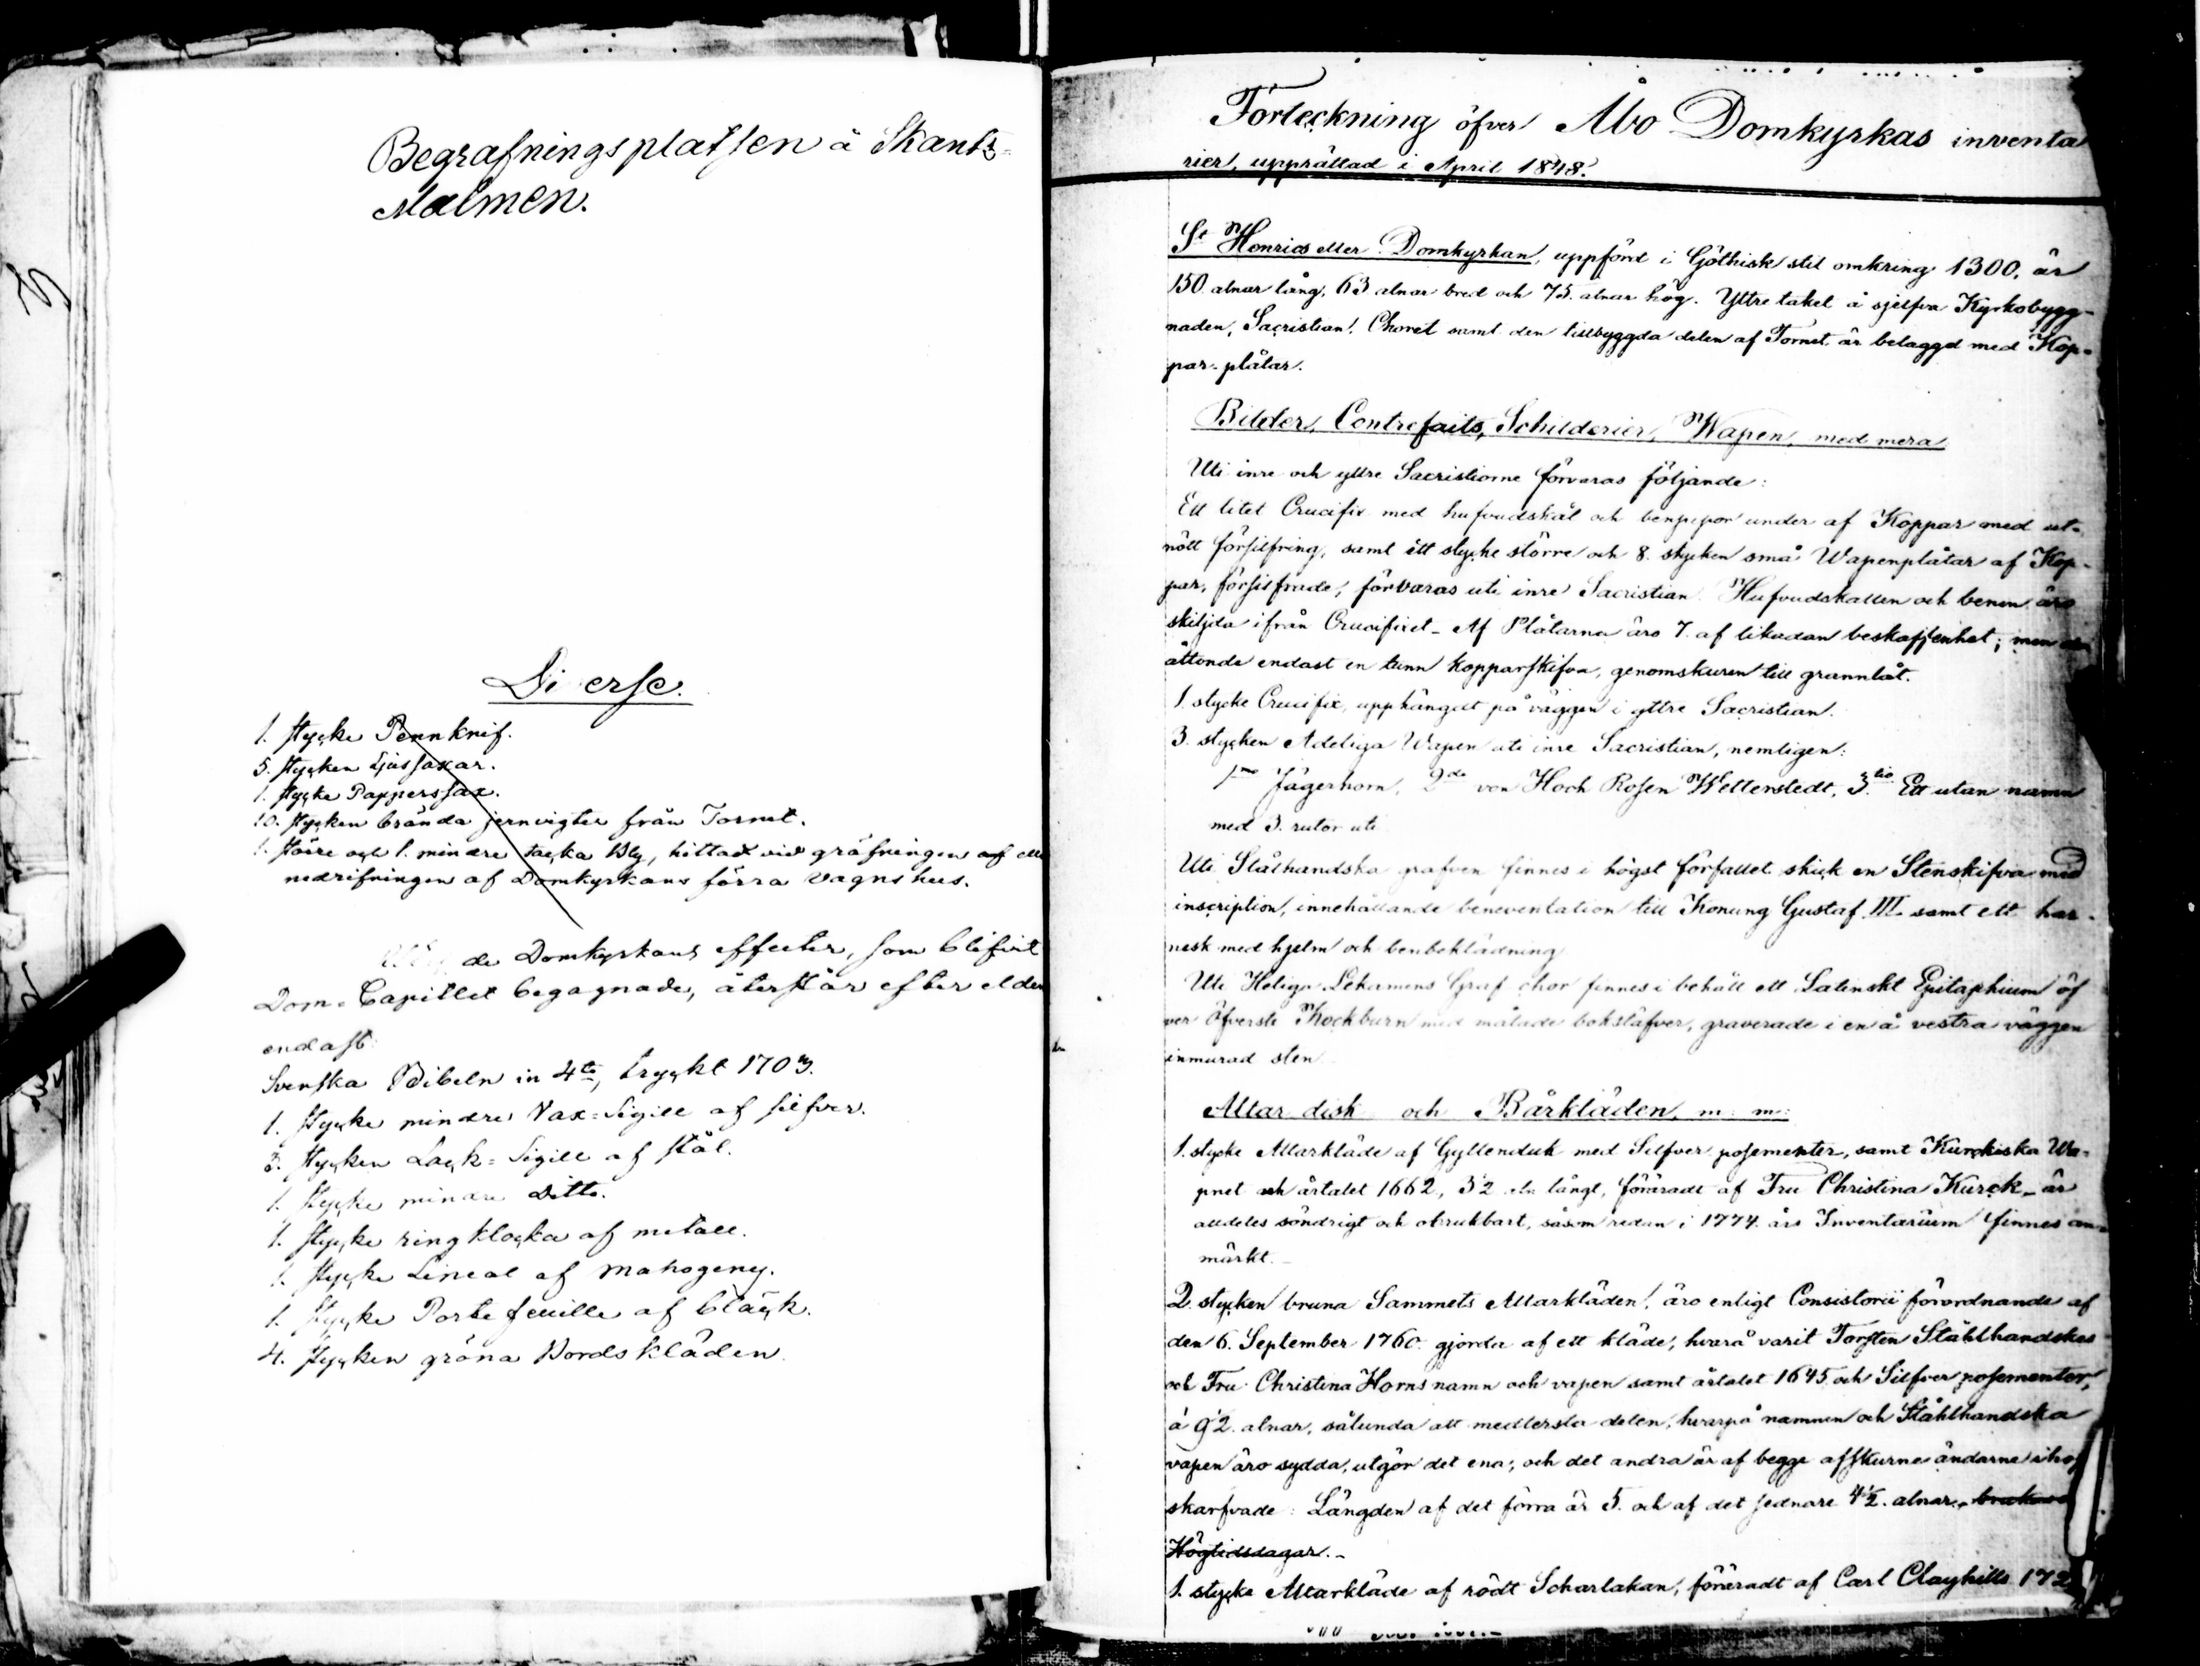 Begrafningsplatsen å Skants-
Malmen.
Diverse.
1. stycke Pennknif.
5. stycken Ljussaxar.
1. stycke Papperssax.
10. stycken brända jernvigter från Tornet.
1. större och 1. mindre tacka Bly, hittade vid gräfningen af
nedrifningen af Domkyrkans förra vagnshus.
de Domkyrkans effecter, som blifvit
Dom-Capitlet begagnade, återstår efter elden
endast:
Svenska Bibeln in 4to, tryckt 1703.
1. stycke mindre Vax-Sigill af silfver.
3. stycken Lack-Sigill af stål.
1. stycke mindre Ditto.
1. stycke ringklocka af metall.
1. stycke Lineal af mahogeny.
1. stycke Portefeuille af bläck.
4. stycken gröna Bordskläden.
Förteckning öfver Åbo Domkyrkas inventa
rier, upprättad i April 1848.
St Henrics eller Domkyrkan, uppförd i Göthisk stil omkring 1300, är
150 alnar lång, 63 alnar bred och 75. alnar hög. Yttre taket å sjelfva Kyrkobygg-
naden, Sacristian, Choret samt den tillbyggda delen af Tornet, är belaggd med Kop-
par-plåtar.
Bilder, Contrefaits, Schilderier, Wapen, med mera
Uti inre och yttre Sacristiorne förvaras följande:
Ett litet Crucifix med hufvudskål och benpipor under af Koppar med ut-
nött försilfring, samt ett stycke större och 8. stycken små Wapenplåtar af Kop-
par, försilfrade, förvaras uti inre Sacristian. Hufvudskallen och benen äro
skiljda ifrån Crucifixet_ Af Plåtarna äro 7. af likadan beskaffenhet; men den
åttonde endast en tunn kopparskifva, genomskuren till grannlåt.
1. stycke Crucifix, upphängdt på väggen i yttre Sacristian.
3. stycken Adeliga Wapen uti inre Sacristian, nemligen:
1mo Jägerhorn, 2do von Hoch Rosen Wetterstedt, 3tio Ett utan namn
med 3. rutor uti
Uti Stålhandska grafven finnes i högst förfallet skick en Stenskifva med
inscription, innehållande beneventation till Konung Gustaf III samt ett har-
nesk med hjelm och benbeklädning
Uti Heliga Lekamens Graf chor finnes i behåll ett Latinskt Epitaphium öf
ver Öfverste Kockburn med målade bokstäfver, graverade i en å vestra väggen
inmurad sten
Altar disk och Bårkläden, m: m:
1. stycke Altarkläde af Gyllenduk med Silfver posementer, samt Kurckiska Wa-
pnet och årtalet 1662, 3½ aln långt, förärade af Fru Christina Kurck_ är
alldeles söndrigt och obrukbart, såsom redan i 1774. års Inventarium finnes an-
märkt._
2. stycken bruna Sammets Altarkläden, äro enligt Consistorii förordnande af
den 6. September 1760. gjorda af ett kläde, hvarå varit Torsten Stålhandskes
och Fru Christina Horns namn och vapen samt årtalet 1645 och Silfver posementer,
à 9½. alnar, sålunda att medlersta delen, hvarpå namnen och Stålhandska
vapen äro sydda, utgör det ena; och det andra är af begge afskurne ändarne ihop
skarfvade: Längden af det förra är 5. och af det sednare 4½. alnar,
Högtidsdagar._
1. stycke Altarkläde af rödt Scharlakan, föräradt af Carl Clayhills 172